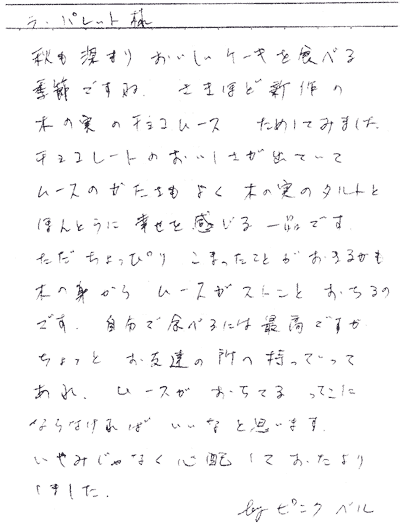 ラ・パレット様
秋も深まり おいしいケーキを食べる
季節ですね。 さきほど新作の
木の実のチョコムース ためしてみました
チョコレートのおいしさが出ていて
ムースのかたさもよく 木の実のタルトと
ほんとうに幸せを感じる一品です
ただちょっぴり こまったことがおきるかも
木の身から ムースがストンと おちるの
です。 自分で食べるには最高ですが
ちょっと お友達の所へ持っていって
あれ、 ムースが おちてる ってことに
ならなければ いいなと思います。
いやみじゃなく心配しておたより
しました。
by ピンク ベル